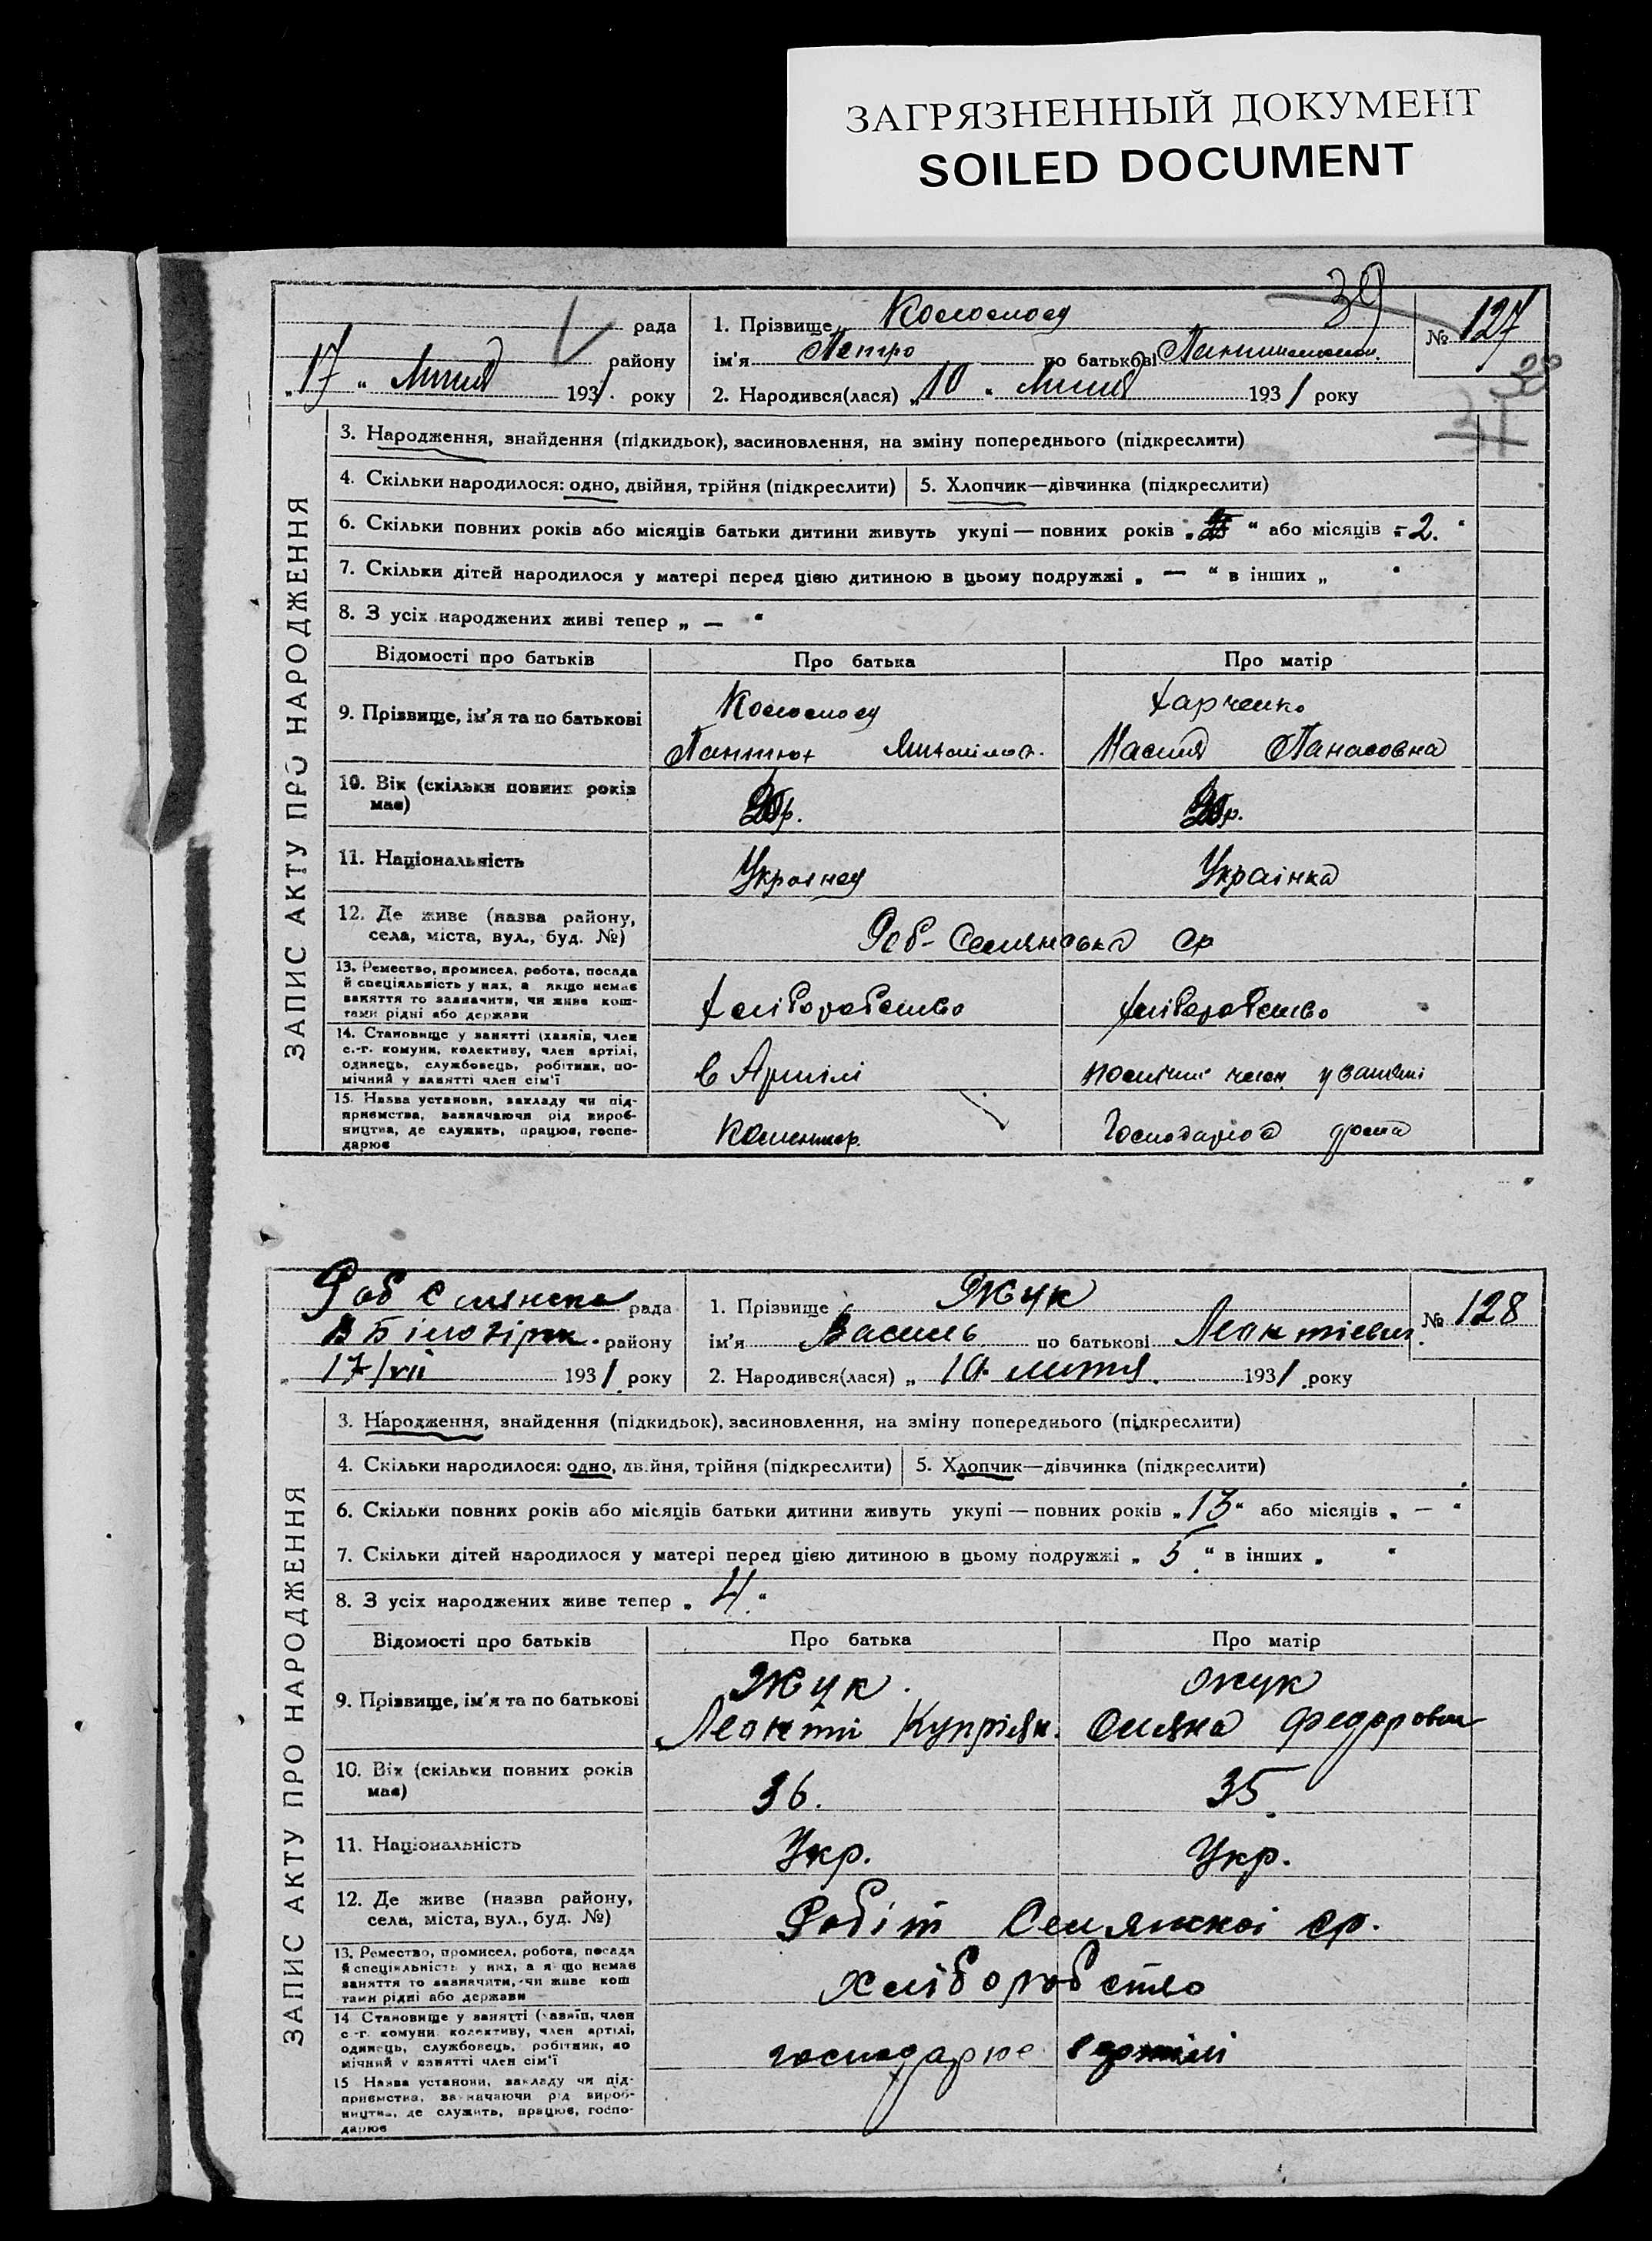 ЗАГРЯЗНЕННЫЙ ДОКУМЕНТ
SOILED DOCUMENT
39
рада
району
„17“ Липня 1931. року
1. Прізвище
ім'я Петро по батькові
2. Народився(лася) „10“ Липня 1931 року
№ 127
38
ЗАПИС АКТУ ПРО НАРОДЖЕННЯ
3. Народження, знайдення (підкидьок), засиновлення, на зміну попереднього (підкреслити)
4. Скільки народилося: одно, двійня, трійня (підкреслити)
5. Хлопчик—дівчинка (підкреслити)
6. Скільки повних років або місяців батьки дитини живуть укупі — повних років „ “ або місяців „ 2. “
7. Скільки дітей народилося у матері перед цією дитиною в цьому подружжі „ — “ в інших „ “
8. З усіх народжених живі тепер „ — “
Відомості про батьків
Про батька
Про матір
9. Прізвище, ім'я та по батькові
Харченко
Настя Панасовна
10. Вік (скільки повних років
має)
р.
р.
11. Національність
Українец
Українка
12. Де живе (назва району,
села, міста, вул., буд. №)
Роб-Селянська ср
13. Ремество, промисел, робота, посада
й спеціяльність у них, а якщо немає
заняття то зазначити, чи живе кош-
тами рідні або держави
Хліборобство
Хліборобство
14. Становище у занятті (хазяїн, член
с.-г. комуни, колективу, член артілі,
одинець, службовець, робітник, по-
мічний у занятті член сім'ї
в Артілі
член у занятті
15. Назва установи, закладу чи під-
приємства, зазначаючи рід вироб-
ництва, де служить, працює, госпо-
дарює
дома
Роб Cелянська рада
В Білозірк. району
17/VII 1931. року
1. Прізвище Жук
ім'я Василь по батькові Леонтієвич.
2. Народився(лася) „ 10. липня. 1931 .року
№ 128
ЗАПИС АКТУ ПРО НАРОДЖЕННЯ
3. Народження, знайдення (підкидьок), засиновлення, на зміну попереднього (підкреслити)
4. Скільки народилося: одно, двійня, трійня (підкреслити)
5. Хлопчик—дівчинка (підкреслити)
6. Скільки повних років або місяців батьки дитини живуть укупі — повних років „13“ або місяців „ — “
7. Скільки дітей народилося у матері перед цією дитиною в цьому подружжі „ 5 “ в інших „ “
8. З усіх народжених живе тепер „ 4. “
Відомості про батьків
Про батька
Про матір
9. Прізвище, ім'я та по батькові
Жук
Леонтій Купріян.
Жук
Оляна Федоровна
10. Вік (скільки повних років
має)
36.
35.
11. Національність
Укр.
Укр.
12. Де живе (назва району,
села, міста, вул., буд. №)
Робіт Селянскої ср.
13. Ремество, промисел, робота, посада
й спеціяльність у них, а якщо немає
заняття то зазначити, чи живе кош
тами рідні або держави
хліборобство
14 Становище у занятті (хазяїн, член
с-г. комуни колективу, член артілі,
одинець, службовець, робітник, по
мічний у занятті член сім'ї
господарює в артілі
15 Назва установи, закладу чи під-
приємства, зазначаючи рід вироб-
ництва, де служить, працює, госпо-
дарює